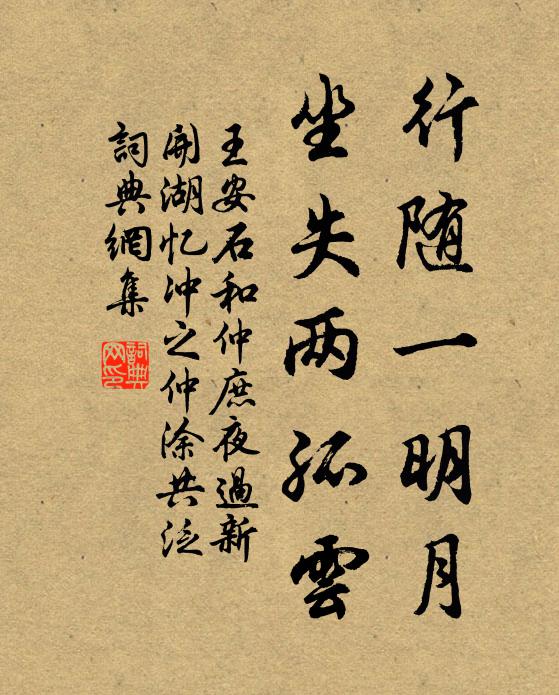 行随一明月
坐失两孤雲
王安石和仲庶夜過新
開湖忆冲之仲涂共泛
詞典網集
詞典网印